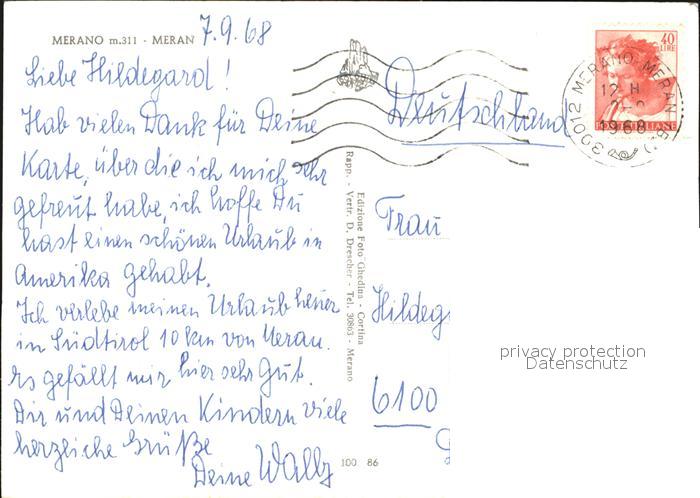 MERANO m.311 - MERAN
7.9.68
Liebe Hildegard!
Hab vielen Dank für Deine
Karte, über die ich mich sehr
gefreut habe, ich hoffe Du
hast einen schönen Urlaub in
Amerika gehabt.
Ich verlebe meinen Urlaub heuer
in Südtirol 10 km von Meran.
Es gefällt mir hier sehr Gut.
Dir und Deinen Kindern viele
herzliche Grüße
Deine Wally
Edizione Foto Ghedina - Cortina
Rapp. - Vertr. D. Drescher - Tel. 30863 - Merano
100 86
40
LIRE
POSTE ITALIANE
39012 MERANO - MERAN (BZ)
12 H
1968
Deutschland
Frau
Hildeg
6100
privacy protection
Datenschutz